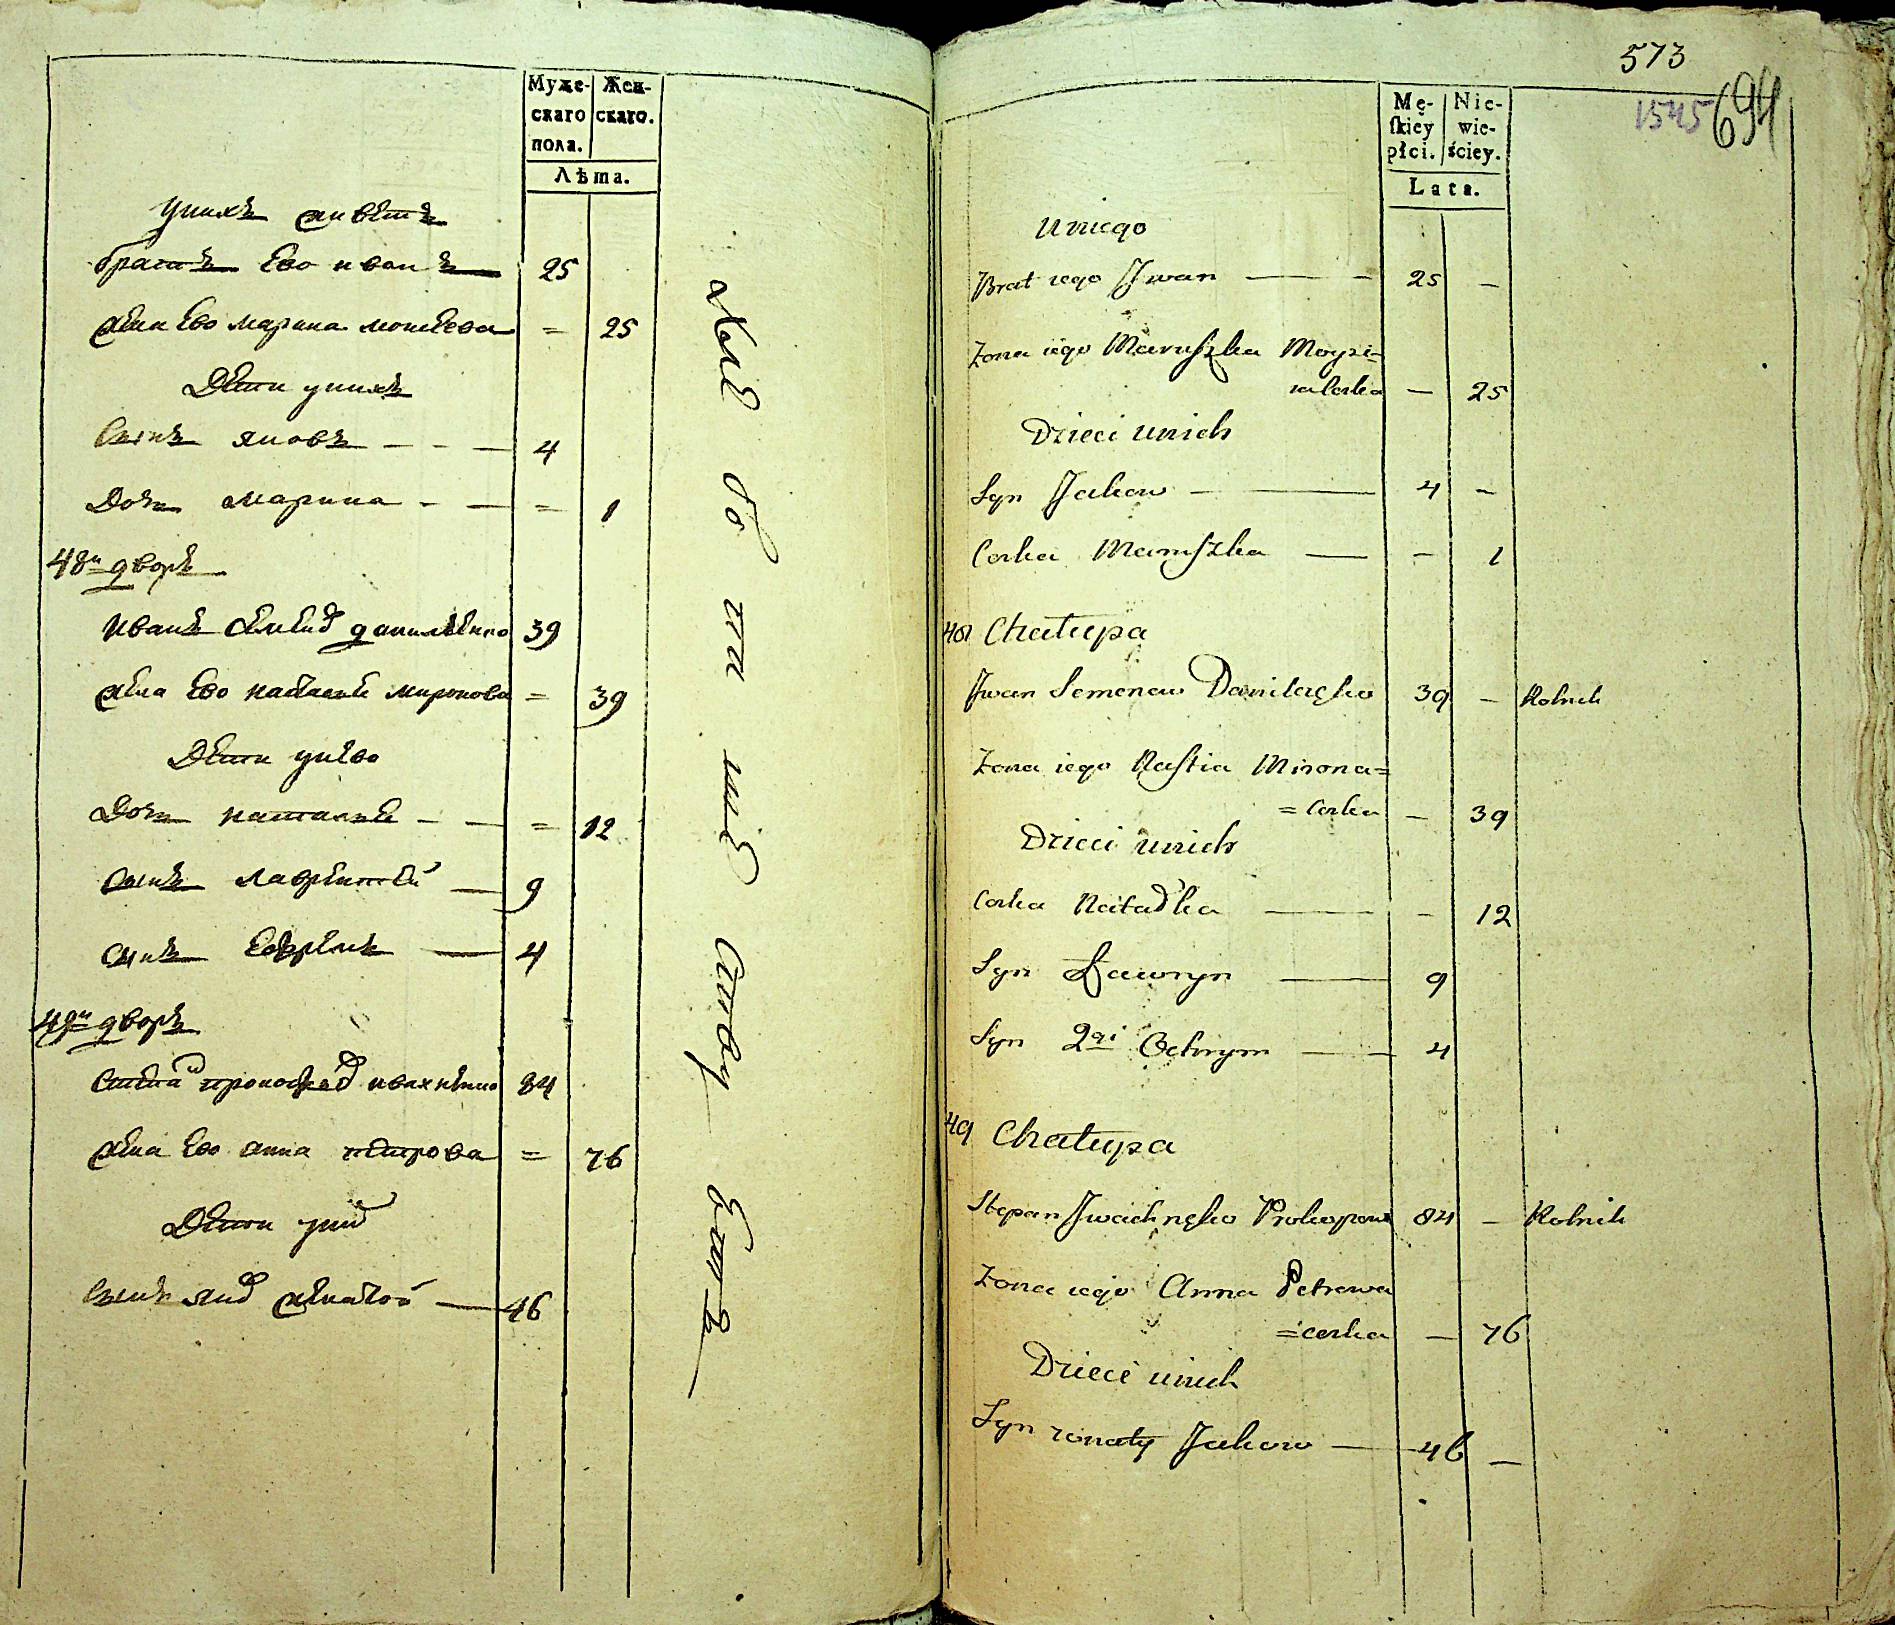 Муже-
скаго
пола.
Жен-
скаго.
Лѣта.
унихъ живетъ
братъ Ево иванъ 25
жена Ево марина моисеева = 25
Дети унихъ
Сынъ яковъ - - — 4
Дочь марина - — = 1
48й дворъ
иванъ Семенов даниленко 39
жена Ево настасье миронова = 39
Дети унево
Дочь наталье - — = 12
Сынъ лаврентей — 9
сынъ Ефремъ — 4
49й дворъ
Степан прокофев ивахненко 84
жена Ево анна петрова = 76
Дети уних
Сынъ яков женатой — 46
573
1545
694
Mę-
ſkiey
płci.
Nie-
wie-
ściey.
Lata.
Uniego
Brat iego Jwan — 25 –
Zona iego Maruſzka Moysie-
wa Corka – 25
Dzieci unich
Syn Jakow — 4 –
Corka Maruſzka — – 1
48 Chałupa
Jwan Semenow Danilęko 39 – Rolnik
Zona iego Naſtia Mirona=
= Corka – 39
Dzieci unich
Corka Natałka — – 12
Syn Ławryn — 9
Syn 2gi Ochrym — 4
49 Chałupa
Stepan Jwachnęko Prokopow 84 – Rolnik
Zona iego Anna Petrowa
=corka – 76
Dzieci unich
Syn zonaty Jakow — 46 –